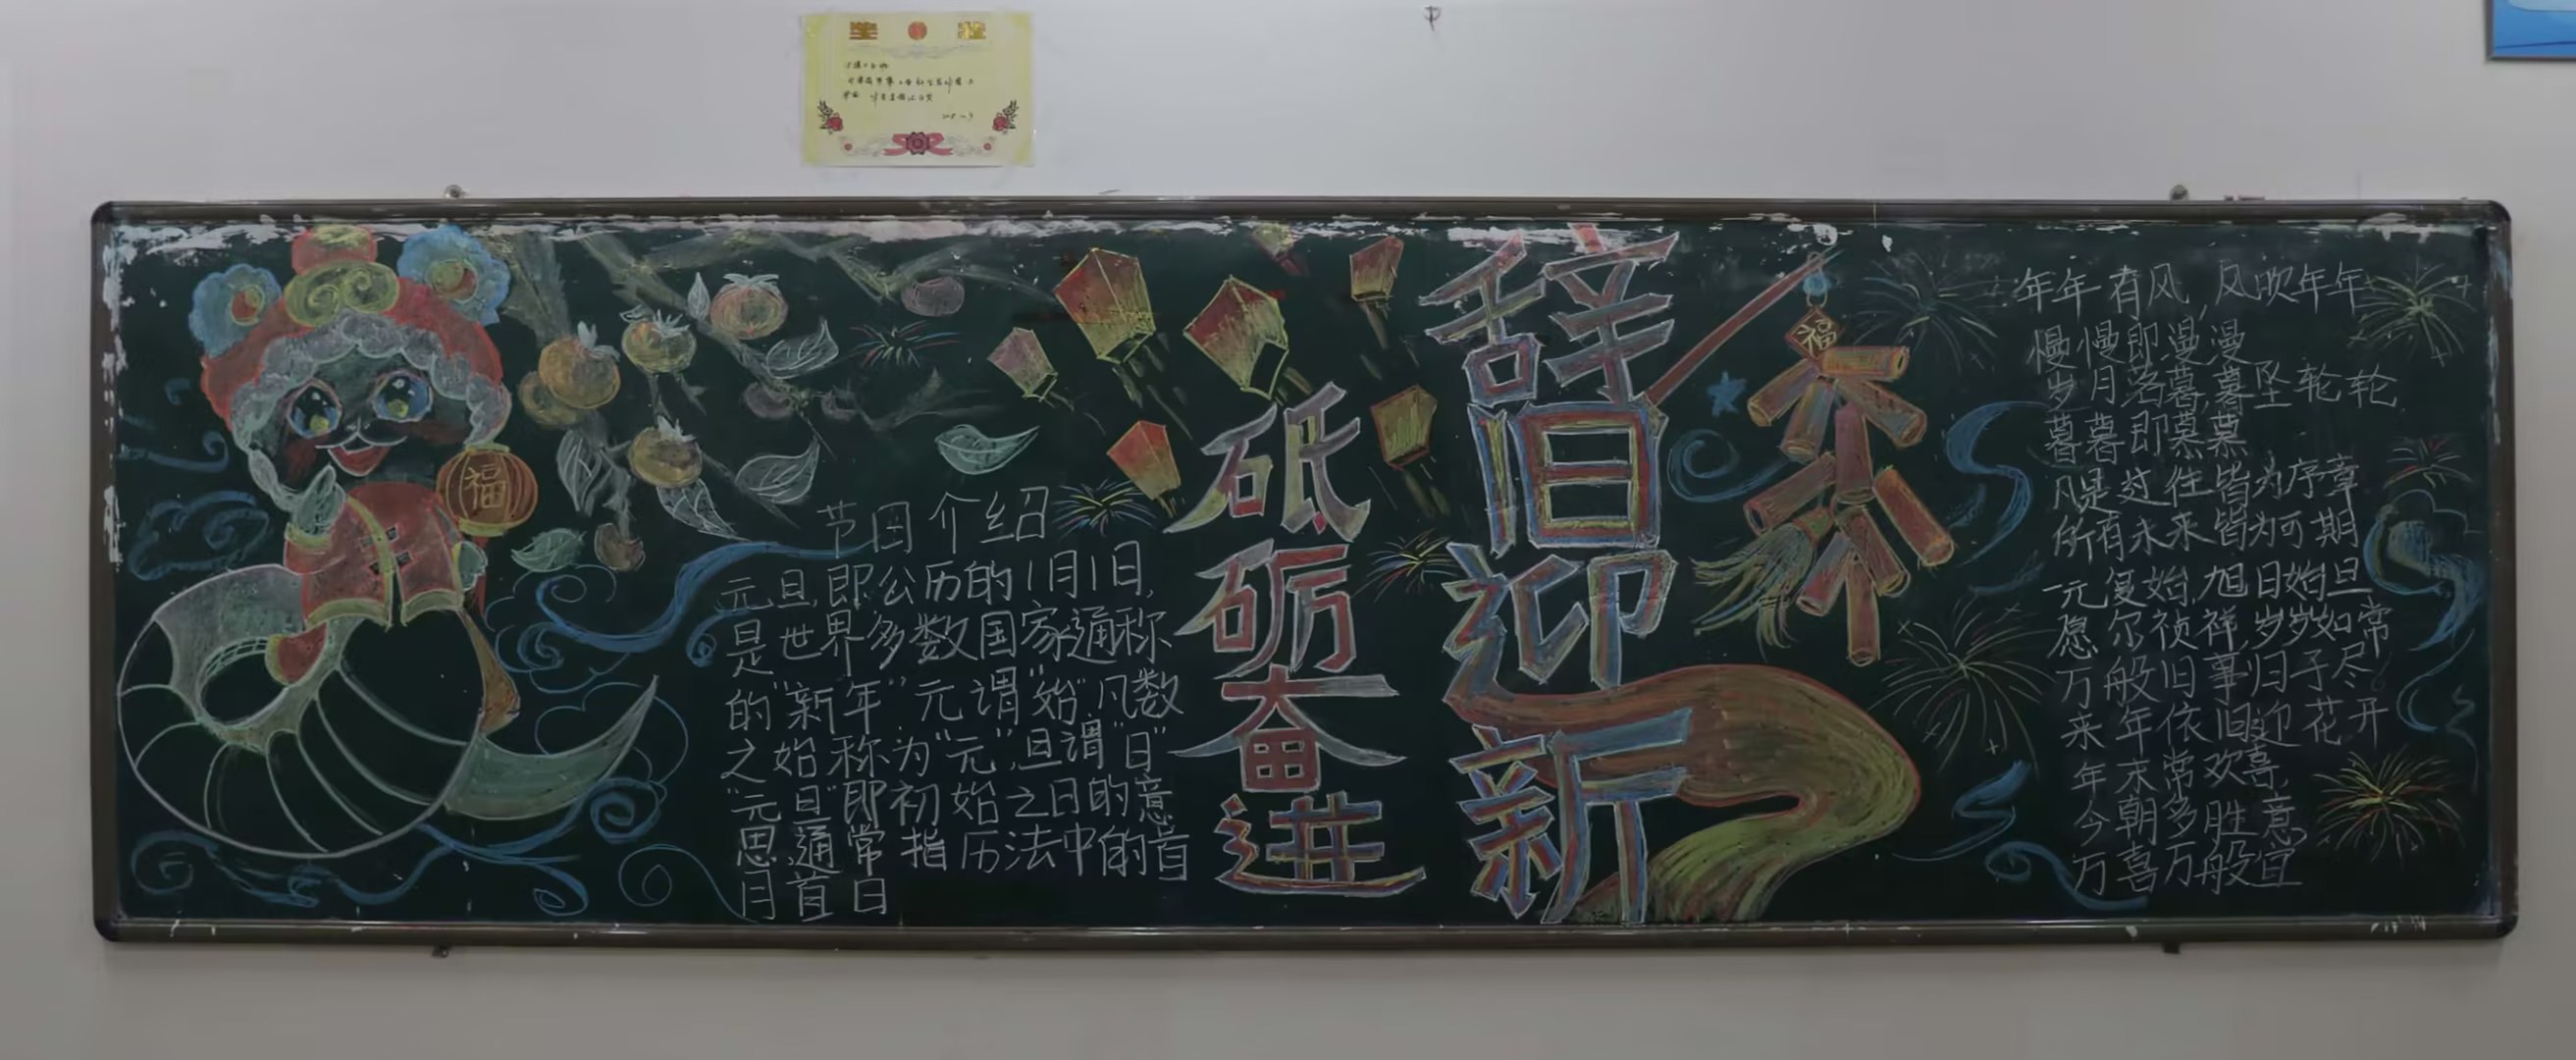 福
节日介绍
元旦,即公历的1月1日,
是世界多数国家通称
的"新年"元谓"始"凡数
之始称为"元",旦谓"日"
"元旦"即初始之日的意
思,通常指历法中的首
月首日
砥砺奋进
辞旧迎新
福
年年有风,风吹年年
慢慢即漫漫
岁月若暮,暮坠轮轮
暮暮即慕慕
凡是过往皆为序章
所有未来皆为可期
元漫始,旭日始旦
愿尔祯祥,岁岁如常
万般旧事归于尽
来年依旧迎花开
年末常欢喜,
今朝多胜意,
万喜万般宜